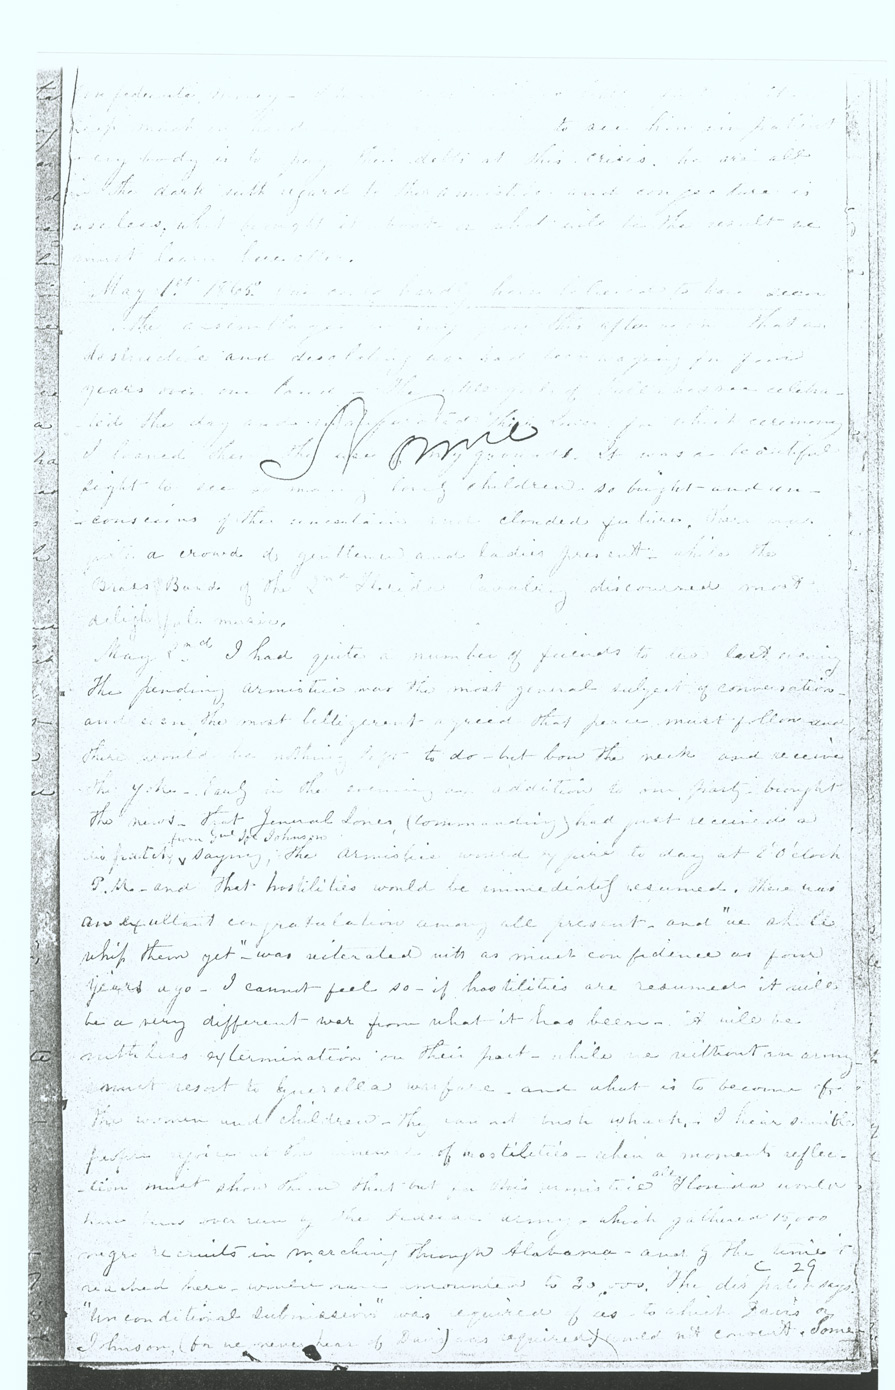 to see him in
every body is to pay their debts at this crisis. We are all
in the dark with regard to the armistice and conjecture is
useless, what brought it about or what will be the result we
must learn hereafter.
May 1st 1865. One could hardly have believed to have seen
the assemblage in my this afternoon that a
destructive and desolating war had been raging for four
years over our land - The celebra-
-ted the day and their Queen, for which ceremony
I loaned them the use of my grounds. It was a beautiful
sight to see so many lovely children so bright and un-
-conscious of the uncertain and clouded future. There was
quite a crowd of gentlemen and ladies present - while the
Brass Band of the 2nd Florida Cavalry discoursed most
delightful music.
None
May 2nd I had quite a number of friends to tea last evening
The pending armistice was the most general subject of conversation
and even the most belligerent agreed that peace must follow and
there would be nothing left to do - but bow the neck and receive
the yoke - Early in the evening an addition to our party brought
the news - that General Jones, (commanding) had just received a
from Genl Jos Johnson
dispatch, saying, the armistice would expire to day at 2 O'clock
P.M. - and that hostilities would be immediately resumed. There was
an exultant congratulation among all present - and "we shall
whip them yet" - was reiterated with as much confidence as four
years ago - I cannot feel so - if hostilities are resumed it will
be a very different war from what it has been - It will be
ruthless extermination on their part - while we without an army
must resort to guerella warfare - and what is to become of
the women and children - they can not bush whack. I hear sensible
people rejoice at the renewal of hostilities - when a moments reflec-
-tion must show them that but for this armistice all Florida would
have been over run by the Federal army, which gathered 15,000
negro recruits in marching through Alabama - and by the time it
C 29
reached here - would have amounted to 30,000. The dispatch says
"Unconditional submission" was required of us - to which Davis or
Johnson, (for we never hear of Davis) was required, could not consent. Some